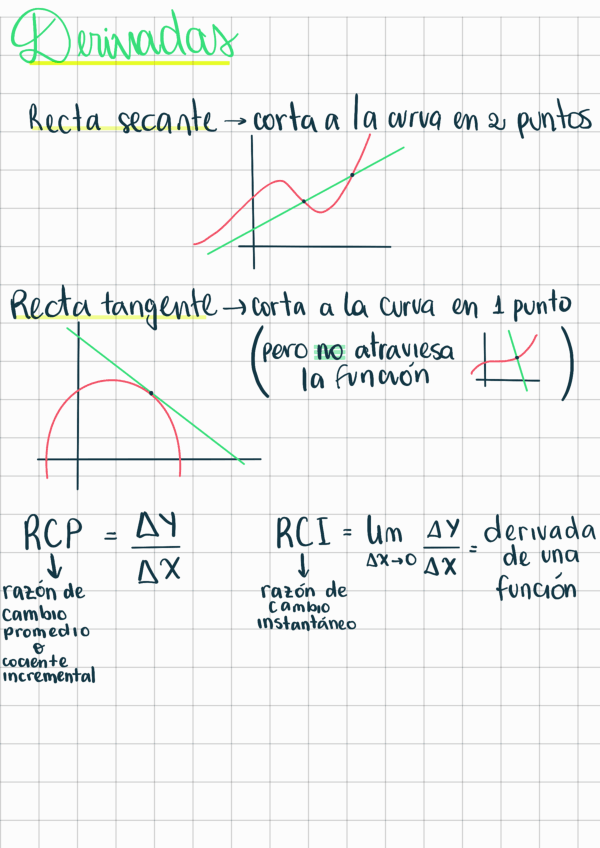 Derivadas
Recta secante → corta a la curva en 2 puntos
Recta tangente → corta a la curva en 1 punto
(pero no atraviesa
la función)
RCP = ΔY / ΔX
↓
razón de
cambio
promedio
o
cociente
incremental
RCI = lim ΔX→0 ΔY / ΔX = derivada
de una
función
↓
razón de
cambio
instantáneo